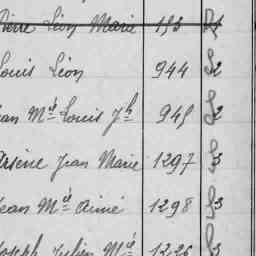 Pierre Léon Marie 153
Louis Léon 944 S2
Jean Mie Louis Jh 945 S2
Arsène Jean Marie 1297 S3
Jean Mie Aimé 1298 S3
Joseph Julien Mie 1226 S3